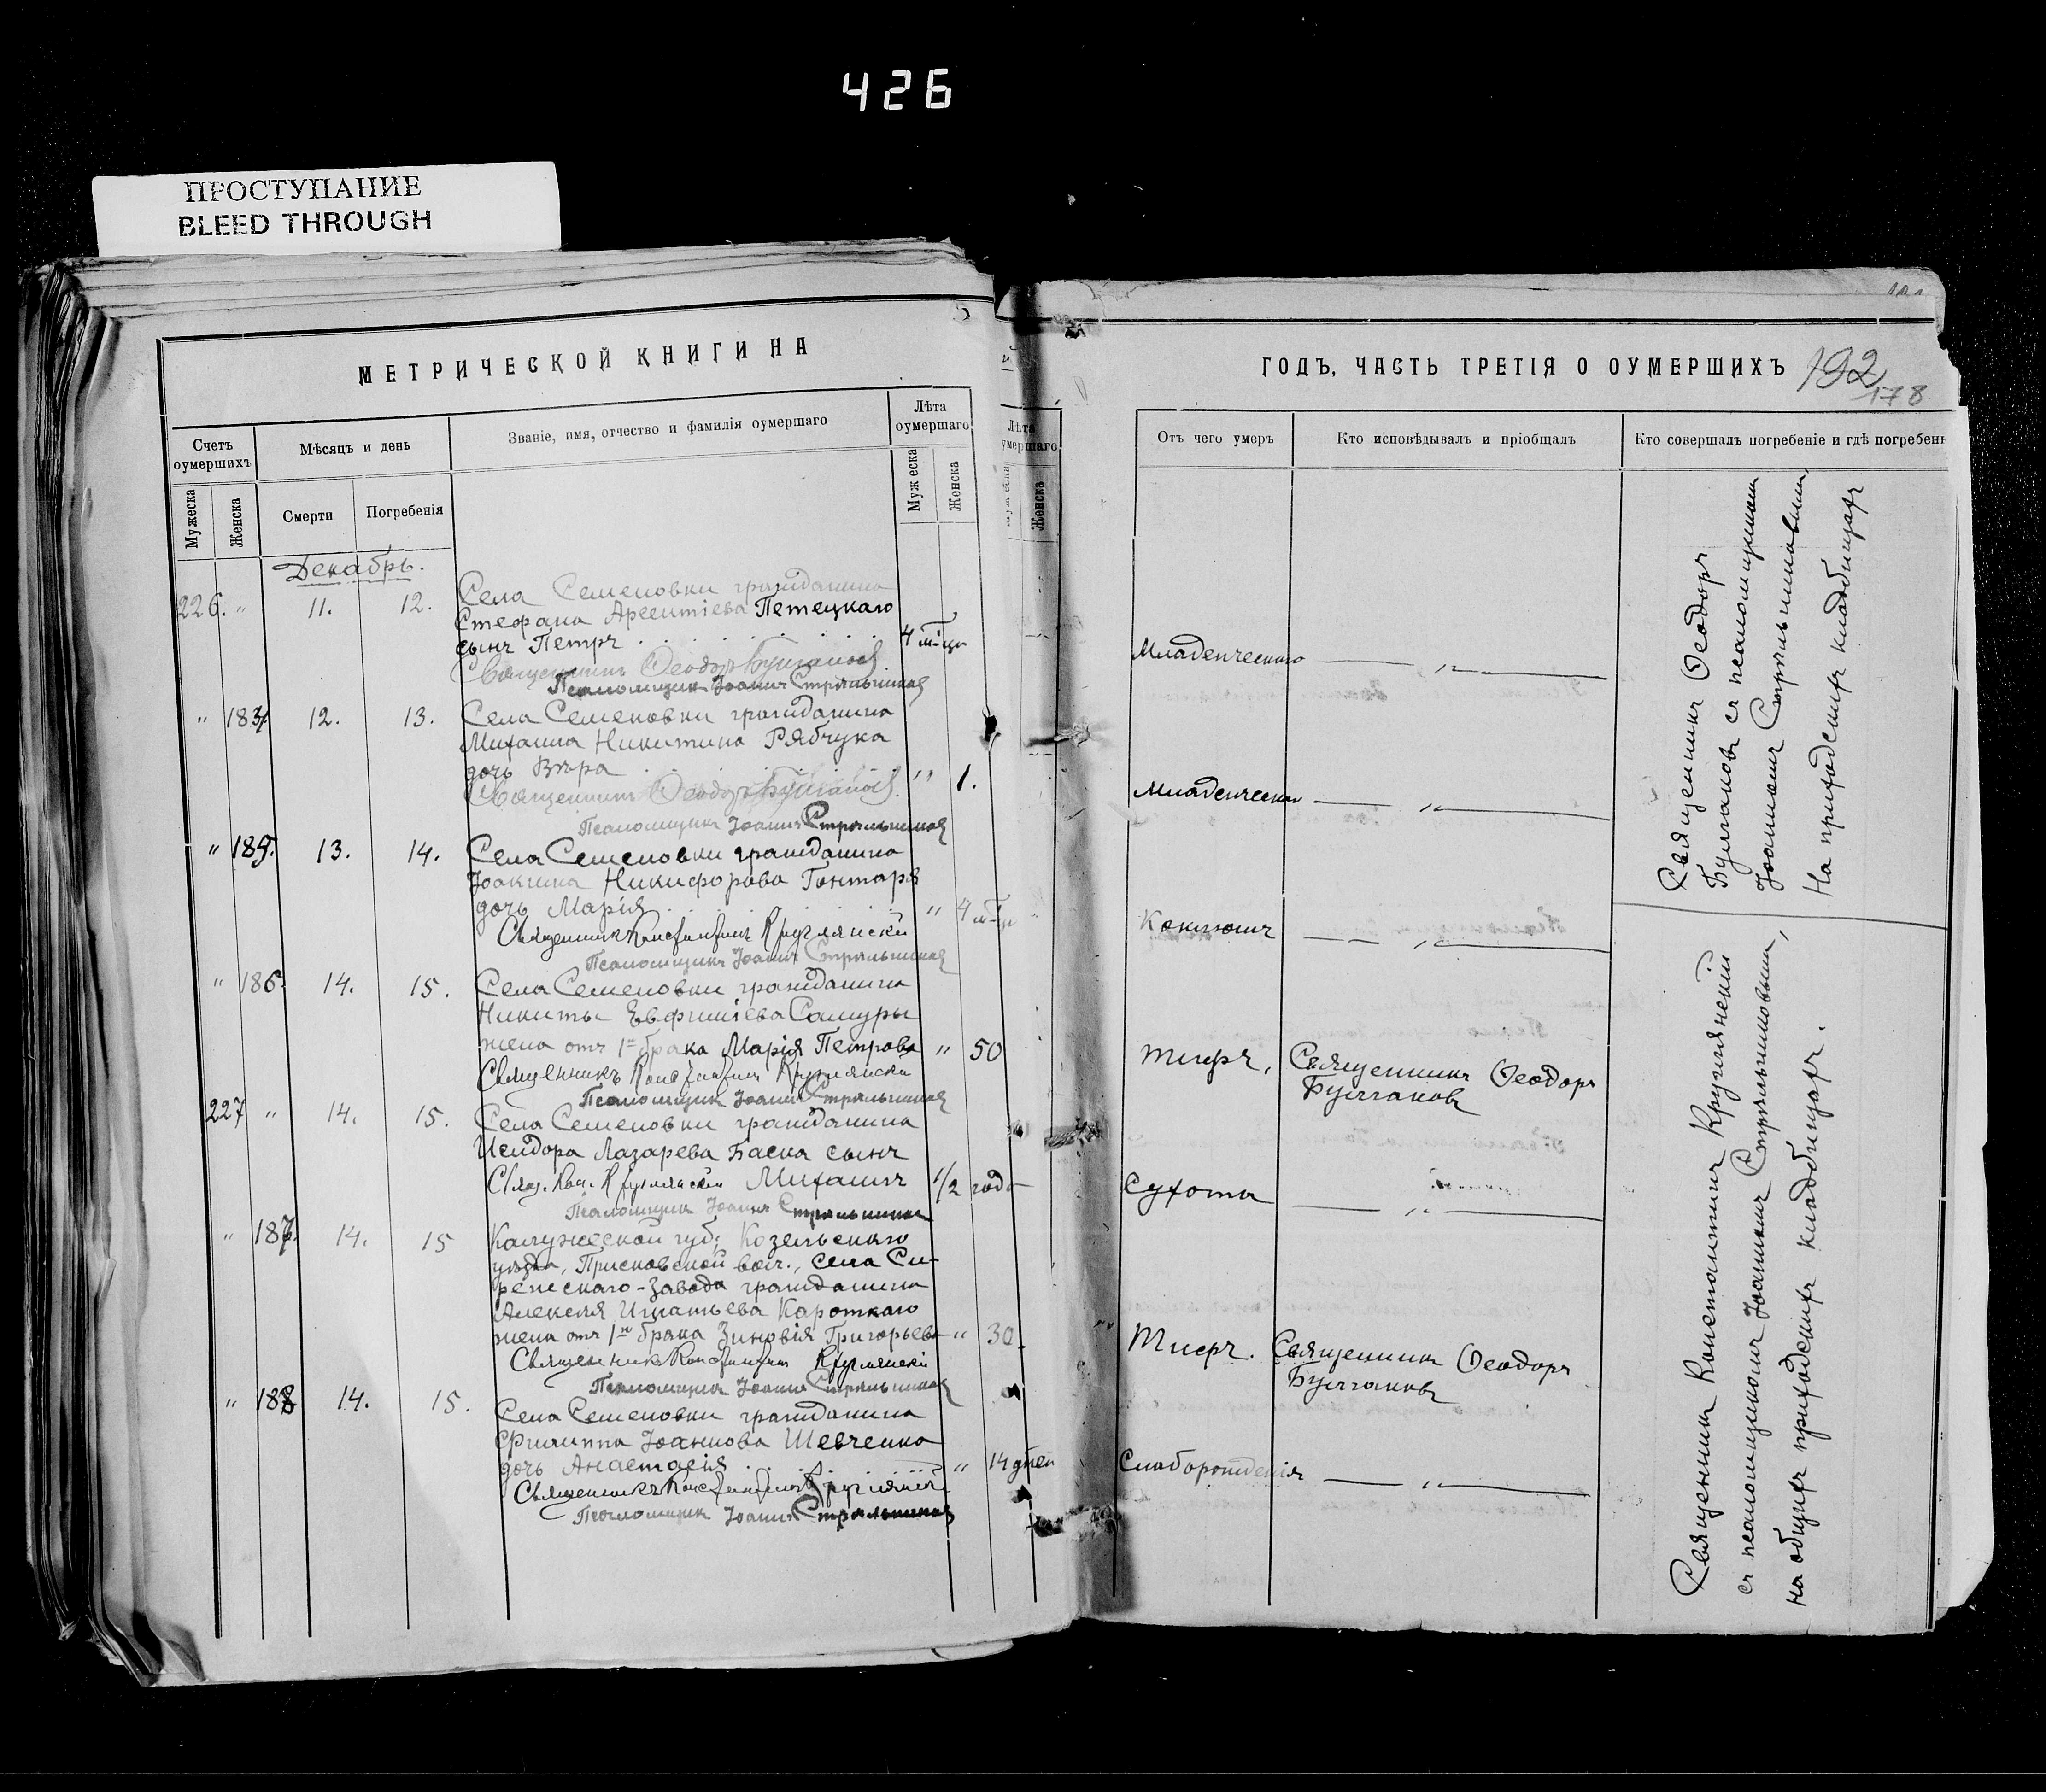 426
ПРОСТУПАНИЕ
BLEED THROUGH
МЕТРИЧЕСКОЙ КНИГИ НА
Счетъ оумершихъ
Мѣсяцъ и день
Званіе, имя, отчество и фамилія оумершаго
Лѣта оумершаго
Мужеска
Женска
Смерти
Погребенія
Муж еска
Женска
Декабрь.
226. " 11. 12. Села Семеновки гражданина
Стефана Арсентіева Петецкаго
сынъ Петръ 4 м-ца
Священникъ Ѳеодоръ Булгаковъ
Псаломщикъ Іоаннъ Стрѣльчиковъ
" 184. 12. 13. Села Семеновки гражданина
Михаила Никитина Рябчука
дочь Вѣра " 1.
Священникъ Ѳеодоръ Булгаковъ
Псаломщикъ Іоаннъ Стрѣльчиковъ
" 185. 13. 14. Села Семеновки гражданина
Іоакима Никифорова Гонтаря
дочь Марія " 4 м-ца
Священникъ Константинъ Круглянскій
Псаломщикъ Іоаннъ Стрѣльчиковъ
" 186. 14. 15. Села Семеновки гражданина
Никиты Евфиміева Самуры
жена отъ 1= брака Марія Петрова " 50
Священникъ Константинъ Круглянскій
Псаломщикъ Іоаннъ Стрѣльчиковъ
227 " 14. 15. Села Семеновки гражданина
Исидора Лазарева Баска сынъ
Свящ. Кон. Круглянскій Михаилъ 1/2 года
Псаломщикъ Іоаннъ Стрѣльчиковъ
" 187. 14. 15 Калужской губ; Козельскаго
уѣзда, Присковской вол., села
завода гражданина
Алексѣя Игнатьева Короткаго
жена отъ 1го брака Зиновія Григорьева " 30.
Священникъ Константинъ Круглянскій
Псаломщикъ Іоаннъ Стрѣльчиковъ
" 188 14. 15. Села Семеновки гражданина
Филиппа Іоаннова Шевченка
дочь Анастасія " 14 дней
Священникъ Константинъ Круглянскій
Псаломщикъ Іоаннъ Стрѣльчиковъ
Лѣта
Женска
ГОДЪ, ЧАСТЬ ТРЕТІЯ О ОУМЕРШИХЪ
192
178
Отъ чего умеръ
Кто исповѣдывалъ и пріобщалъ
Кто совершалъ погребеніе и гдѣ погребенъ
Младенческаго — " —
Младенческая — " —
Коклюшъ — " —
Тифъ. Священникъ Ѳеодоръ
Булгаковъ
Сухоты — " —
Тифъ. Священникъ Ѳеодоръ
Булгаковъ
Слаборожденія — " —
Священникъ Ѳеодоръ
Булгаковъ съ псаломщикомъ
Іоанномъ Стрѣльчиковымъ
На приходскихъ кладбищахъ
Священникъ Константинъ Круглянскій
съ псаломщикомъ Іоанномъ Стрѣльчиковымъ,
на общихъ приходскихъ кладбищахъ.